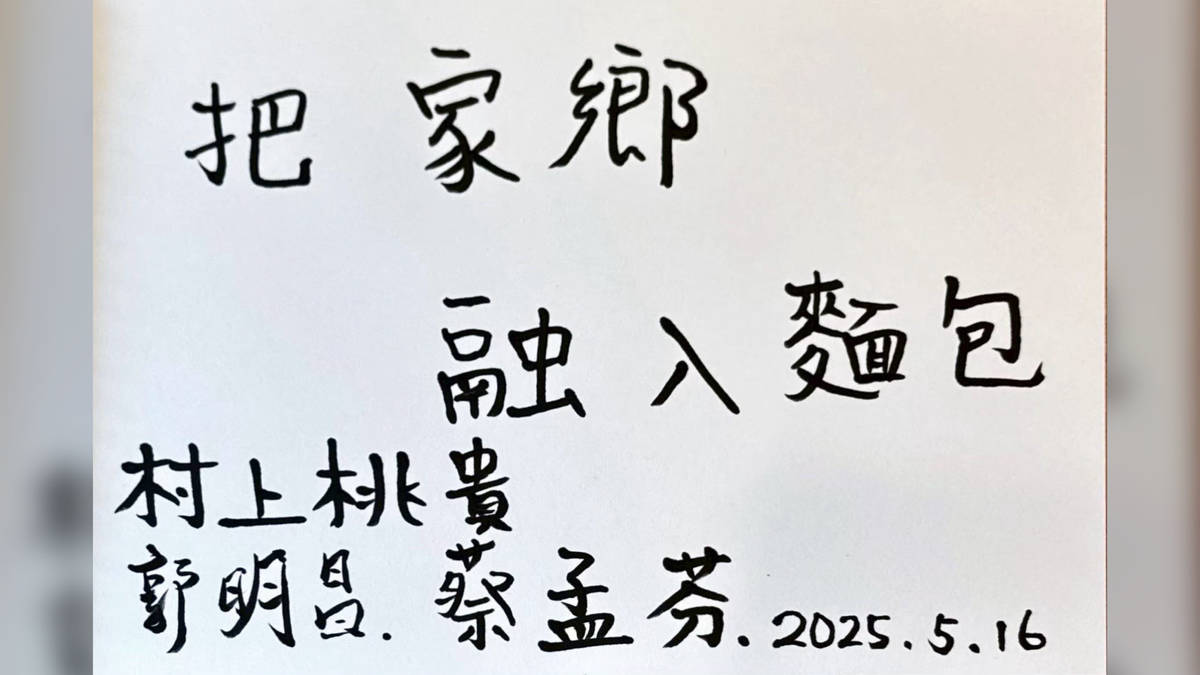 把家鄉
融入麵包
村上桃貴
郭明昌.蔡孟芬.2025.5.16